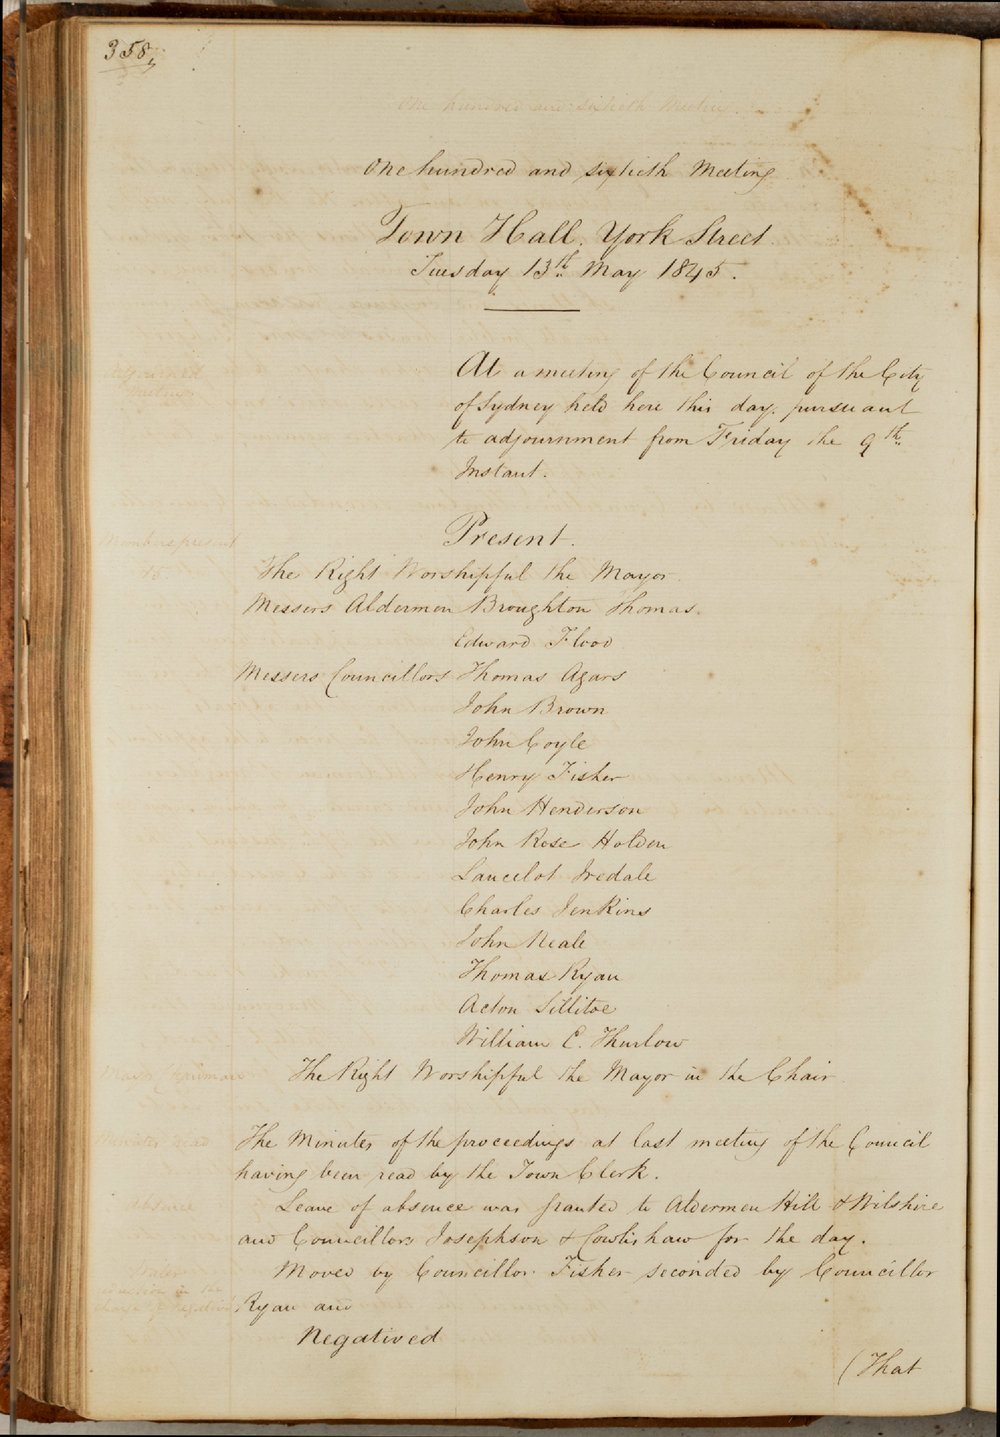 358,
One hundred and sixtieth Meeting
One hundred and sixtieth Meeting
Town Hall. York Street.
Tuesday 13th. May 1845.
Adjourned
Meeting
At a meeting of the Council of the City
of Sydney held here this day. pursuant
to adjournment from Friday the 9th.
Instant.
Present.
Members present
15
The Right Worshipful the Mayor.
Messers Aldermen Broughton Thomas.
Edward Flood
Messers Councillors Thomas Agars
John Brown
John Coyle
Henry Fisher
John Henderson
John Rose Holden
Lancelot Iredale
Charles Jenkins
John Neale
Thomas Ryan
Acton Sillitoe
William C. Thurlow
Chairman
The Right Worshipful the Mayor in the Chair
Minutes read
The Minutes of the proceedings at last meeting of the Council
having been read by the Town Clerk.
absence
Leave of absence was granted to Aldermen Hill & Wilshire
and Councillors Josephson & Cowlishaw for the day.
Moved by Councillor Fisher seconded by Councillor
reduction in the
charge of negatived
Ryan and
Negatived
(That